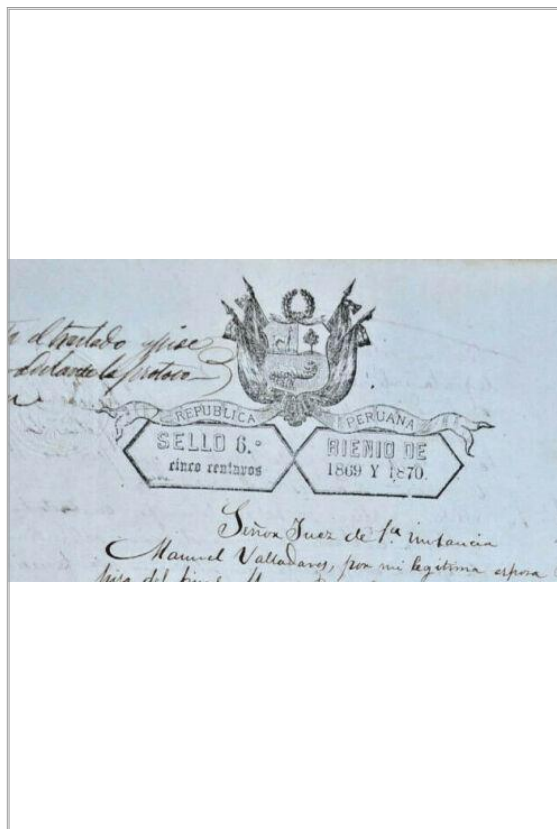 el traslado y
REPUBLICA PERUANA
SELLO 6.º
cinco centavos
BIENIO DE
1869 Y 1870.
Señor Juez de 1ª instancia
Manuel Valladares, por mi legítima esposa
hija del